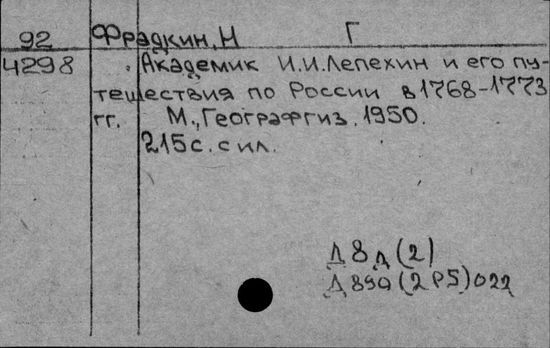 92 Фрадкин, Н Г
4298 Академик И.И.Лепехин и его пу-
тешествия по России в 1768-1773
гг. М., Географгиз. 1950.
215с. с ил.
Д8д(2)
Д890(2Р5)022